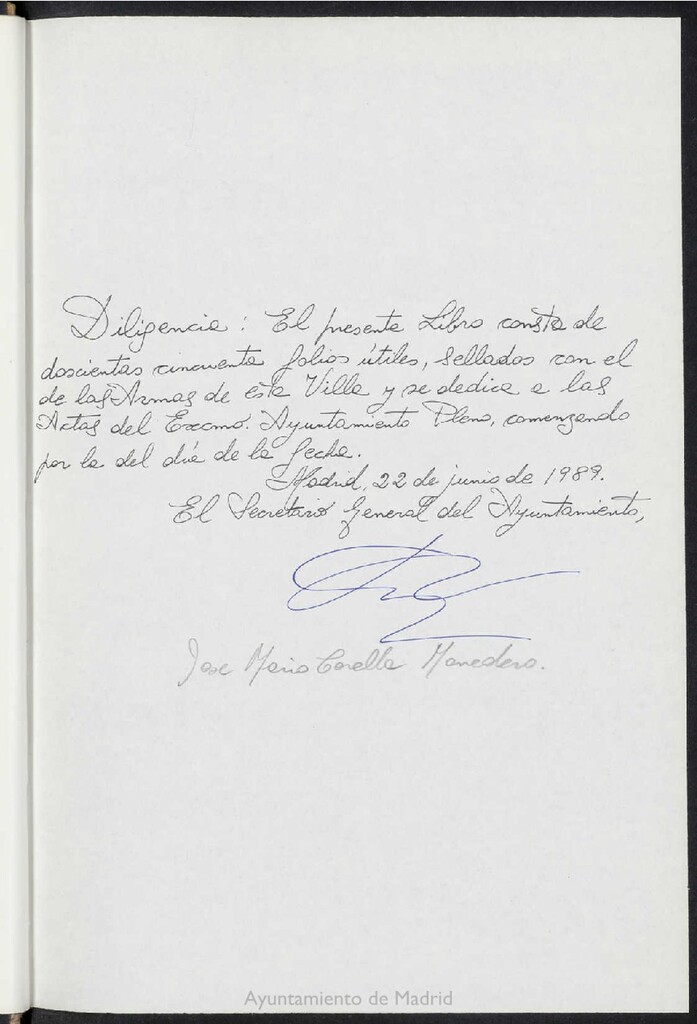 Diligencia: El presente Libro consta de
doscientas cincuenta folios útiles, sellados con el
de las Armas de esta Villa y se dedica a las
Actas del Excmo. Ayuntamiento Pleno, comenzando
por la del día de la fecha.
Madrid, 22 de junio de 1989.
El Secretario General del Ayuntamiento,
Jose Mario Corella Monedero.
Ayuntamiento de Madrid